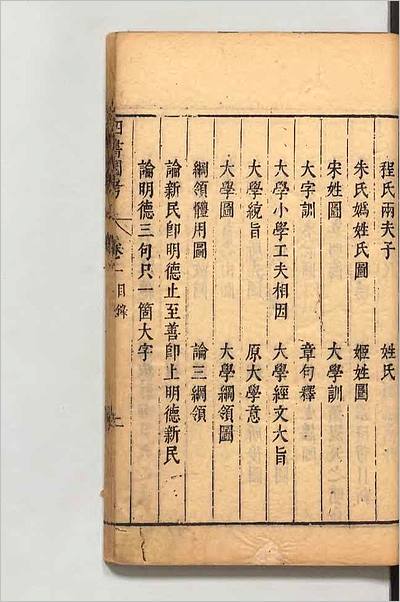 程氏兩夫子 姓氏
朱氏媯姓氏圖 姬姓圖
宋姓圖 大學訓
大字訓 章句釋
大學小學工夫相因 大學經文大旨
大學統旨 原大學意
大學圖 大學綱領圖
綱領體用圖 論三綱領
論新民卽明德止至善卽上明德新民
論明德三句只一箇大字
四書圖考 卷一目錄